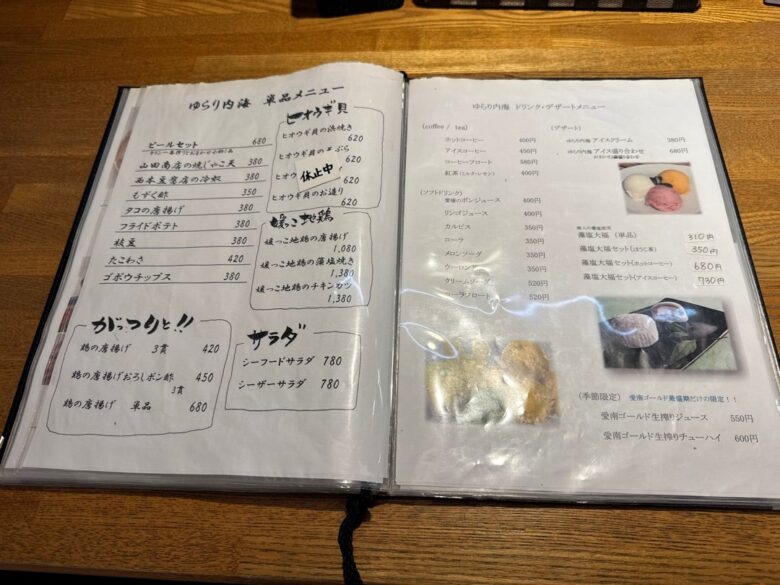 ゆらり内海 単品メニュー
ビールセット 680
山田商店の焼じゃこ天 380
西本豆腐店の冷奴 380
もずく酢 350
タコの唐揚げ 380
フライドポテト 380
枝豆 380
たこわさ 420
ゴボウチップス 380
ヒオウギ貝
ヒオウギ貝の浜焼き
620
ヒオウギ貝の天ぷら
620
休止中
ヒオウギ貝の
620
ヒオウギ貝のお造り
620
媛っこ地鶏
媛っこ地鶏の唐揚げ
1,080
媛っこ地鶏の藻塩焼き
1,380
媛っこ地鶏のチキンカツ
1,380
がっつりと!!
鶏の唐揚げ 3貫 420
鶏の唐揚げおろしポン酢 450
3貫
鶏の唐揚げ 単品 680
サラダ
シーフードサラダ 780
シーザーサラダ 780
ゆらり内海 ドリンク・デザートメニュー
(coffee / tea)
ホットコーヒー 400円
アイスコーヒー 450円
コーヒーフロート 580円
紅茶(ミルク・レモン) 400円
(ソフトドリンク)
愛媛のポンジュース 400円
リンゴジュース 400円
カルピス 350円
コーラ 350円
メロンソーダ 350円
ウーロン 350円
クリームソーダ 520円
コーラフロート 520円
(デザート)
ゆらり内海 アイスクリーム 380円
ゆらり内海 アイス盛り合わせ 680円
藻塩大福(単品) 310円
藻塩大福セット(ほうじ茶) 350円
藻塩大福セット(ホットコーヒー) 680円
藻塩大福セット(アイスコーヒー) 730円
(季節限定) 愛南ゴールド最盛期だけの限定!!
愛南ゴールド生搾りジュース 550円
愛南ゴールド生搾りチューハイ 600円